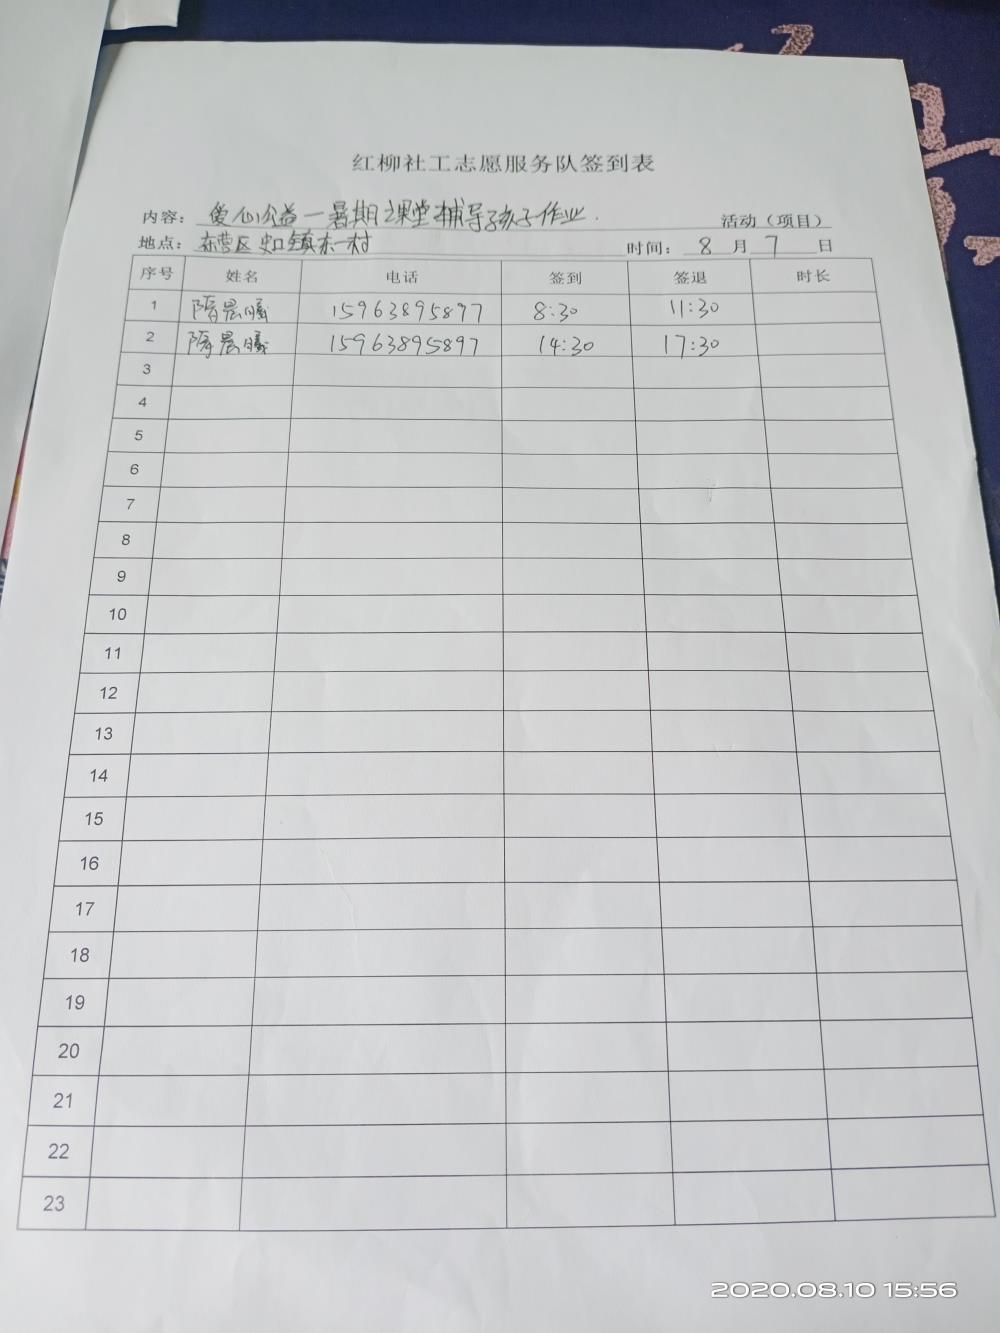 红柳社工志愿服务队签到表
内容: 爱心公益一暑期课堂辅导孩子作业. 活动（项目）
地点: 东营区史口镇东一村 时间: 8 月 7 日
序号 姓名 电话 签到 签退 时长
1 隋晨曦 15963895897 8:30 11:30
2 隋晨曦 15963895897 14:30 17:30
3
4
5
6
7
8
9
10
11
12
13
14
15
16
17
18
19
20
21
22
23
2020.08.10 15:56